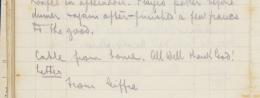 in afternoon. Played poker before
dinner & again after - finished a few francs
to the good.
Cable from home. All Well thank God!
Letter
from